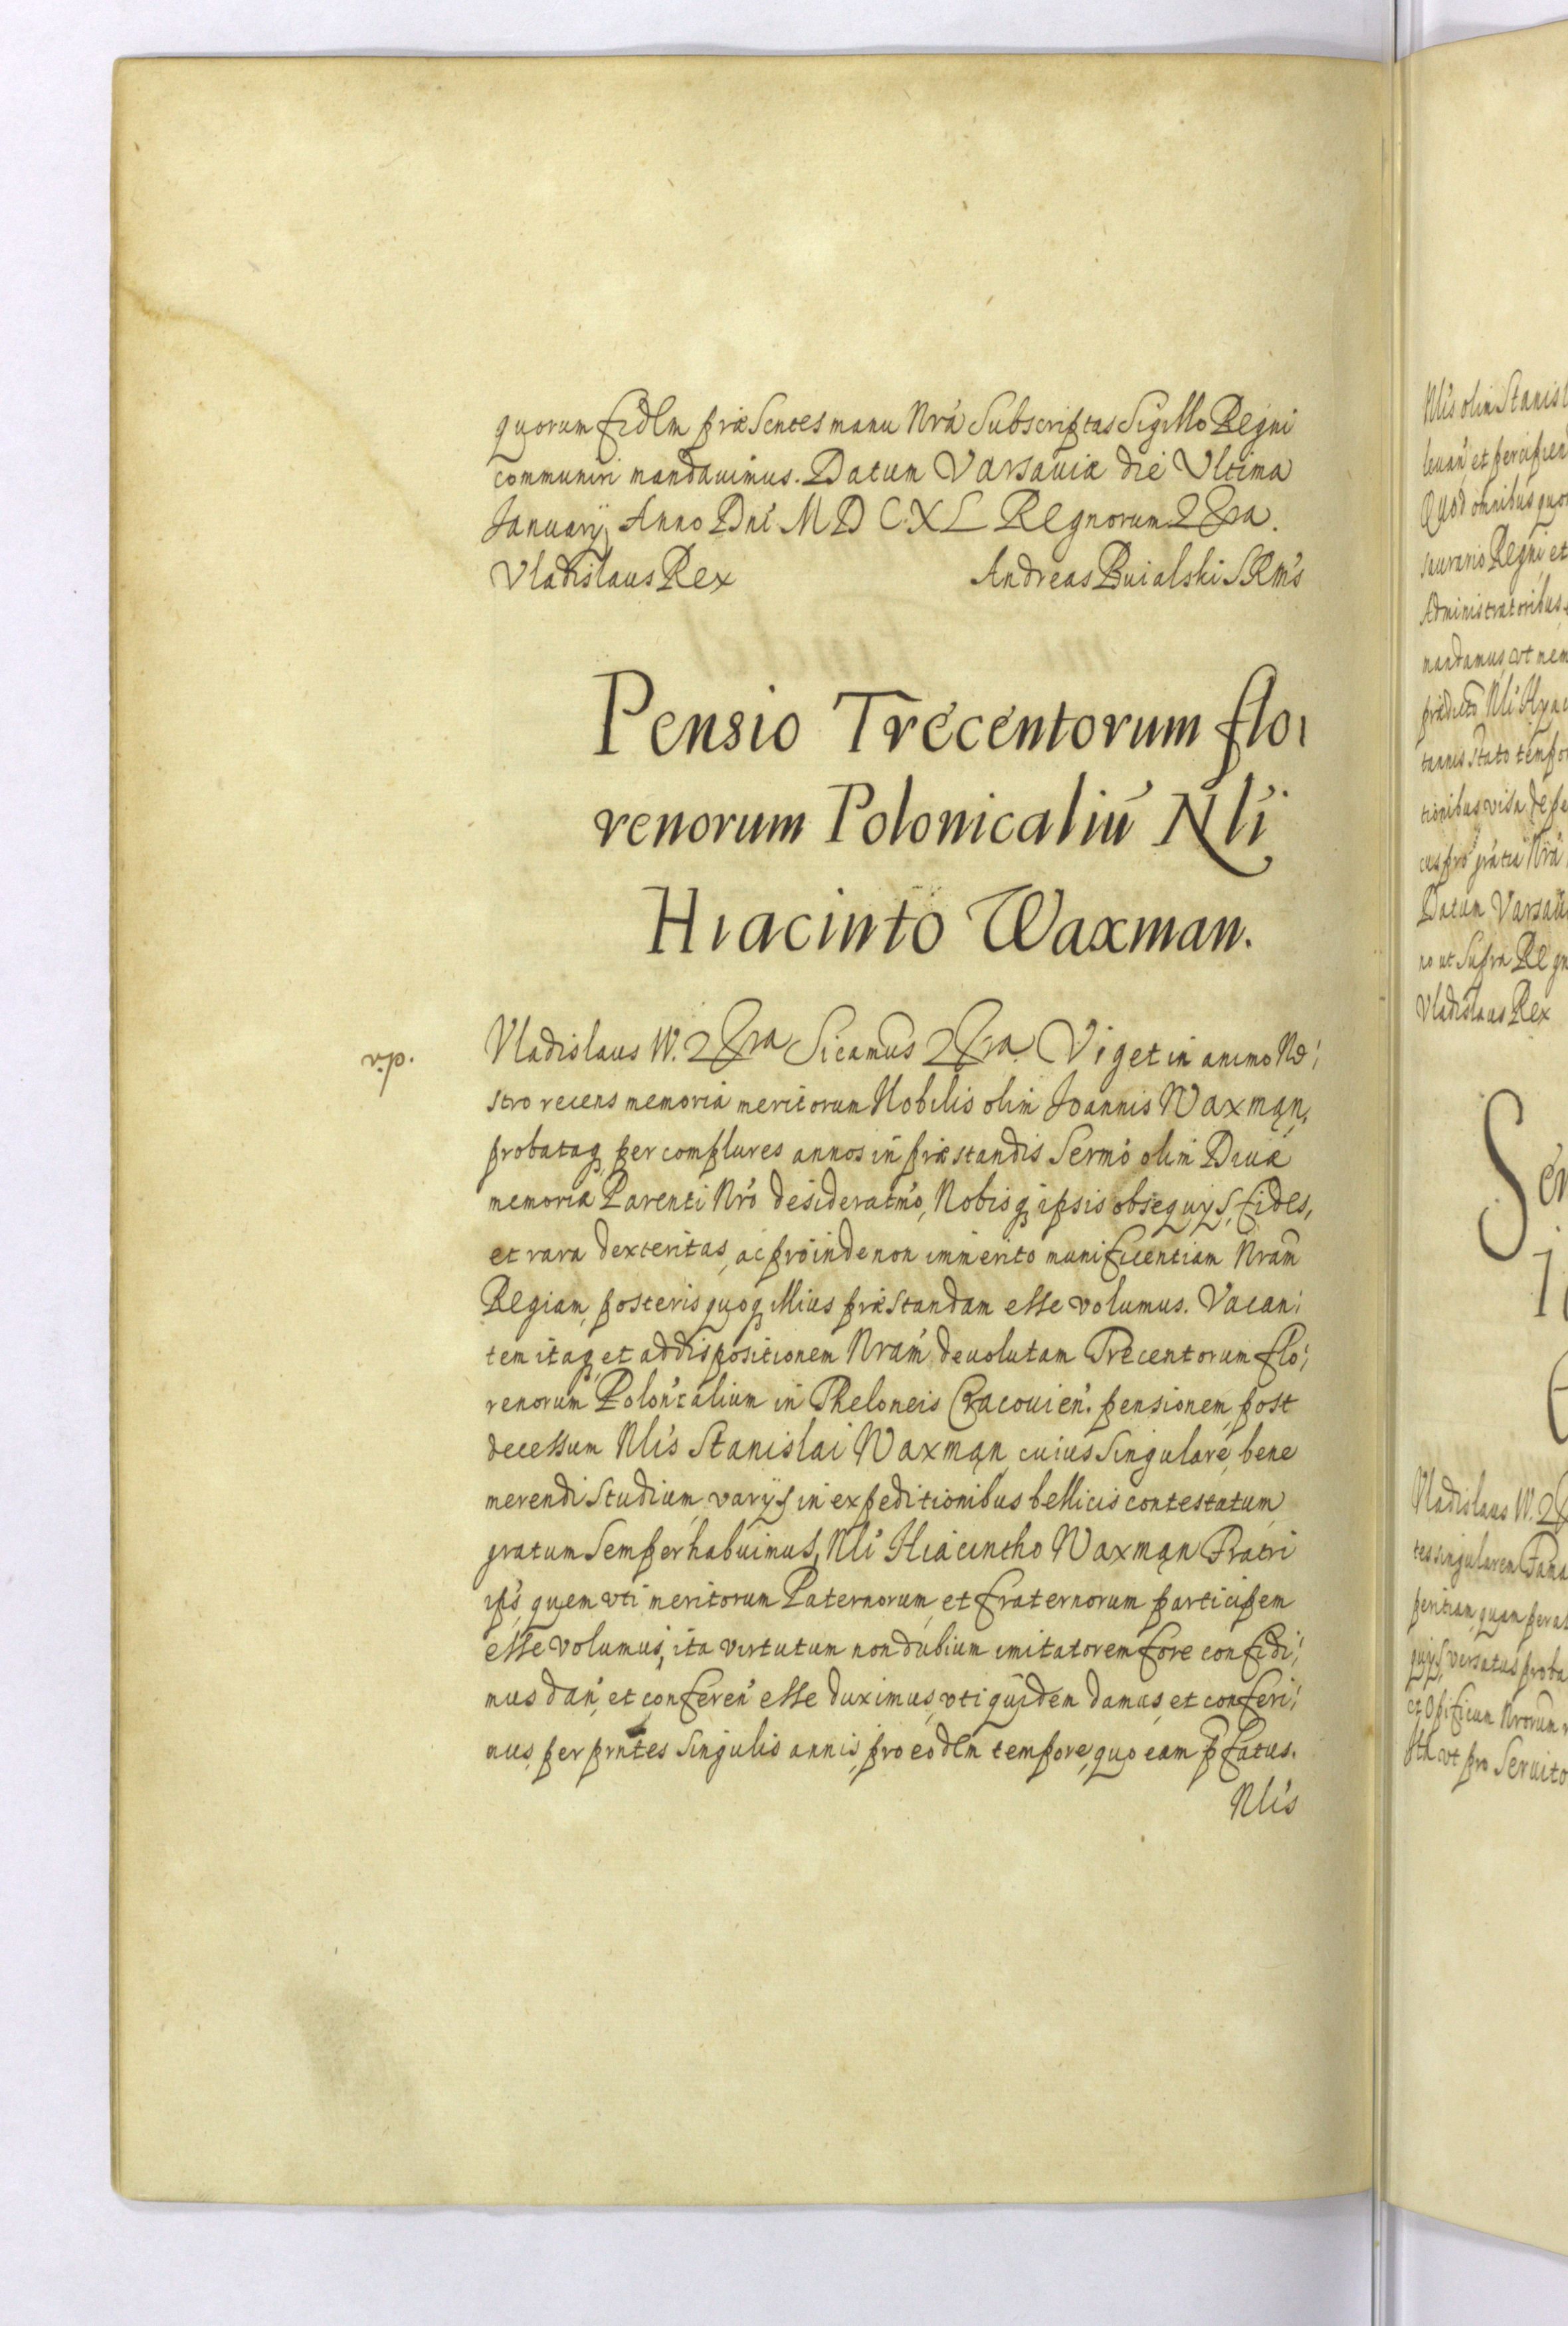 quorum fidem præsentes manu Nrá Subscriptas Sigillo Regni
communiri mandauimus. Datum Varsauiæ die Ultima
Januarij Anno Dni M D C X L Regnorum
Vladislaus Rex Andreas Buialski SRMs
Pensio Trecentorum flo:
renorum Polonicaliú Nli
Hiacinto Waxman.
Vladislaus IV. Sicamus Viget in animo No:
stro recens memoria meritorum Nobilis olim Joannis Waxmąn,
probataq per complures annos in præstandis Sermo olim Diuæ
memoriæ Parenti Nro desideratmo, Nobisq ipsis obsequijs, fides,
et rara dexteritas, ac proinde non immerito munificentiam Nram
Regiam, posteris quoq illius præstandam esse volumus. Vacan:
tem itaq et ad dispositionem Nram deuolutam Trecentorum flo:
renorum Polon'calium in Theloneis Cracouien. pensionem, post
decessum Nlis Stanislai Waxmąn, cuius singulare, bene
merendi studium, varijs in expeditionibus bellicis contestatum,
gratum semper habuimus, Nli Hiacintho Waxmąn Fratri
ips, quem vti meritorum Paternorum, et fraternorum participem
esse volumus, ita virtutum non dubium imitatorem fore confidi:
mus dan, et conferen esse duximus, vti quidem damus, et conferi:
mus, per prntes singulis annis, pro eodem tempore, quo eam pfatus.
Nlis
Nlis olim Stanisl
leuan, et percipien
Quod omnibus quor
sauraris Regni, et
Administratoribus,
mandamus, vt nem
prædicto Nli Hyac
tannis stato tempor
Datum Varsaui
no ut Supra Regn
Vladislaus Rex
Vladislaus IV.
tes singularem Fama
peritiam, quam per
quijs, versatus proba
et Opificum Nrorum
vt pro Seruito